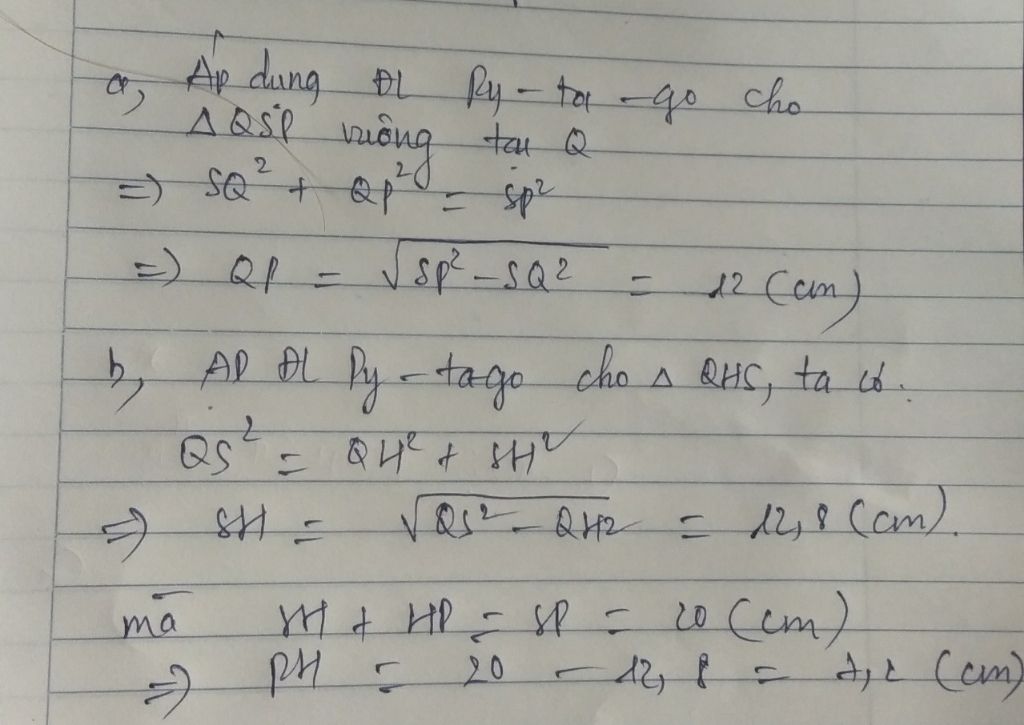 a, Áp dụng ĐL Py-ta-go cho
△QSP vuông tại Q
=> SQ² + QP² = SP²
=> QP = √SP² - SQ² = 12 (cm)
b, AD ĐL Py-tago cho △ QHS, ta có.
QS² = QH² + SH²
=> SH = √QS² - QH2 = 12,8 (cm).
mà SH + HP = SP = 20 (cm)
=> PH = 20 - 12,8 = 7,2 (cm)